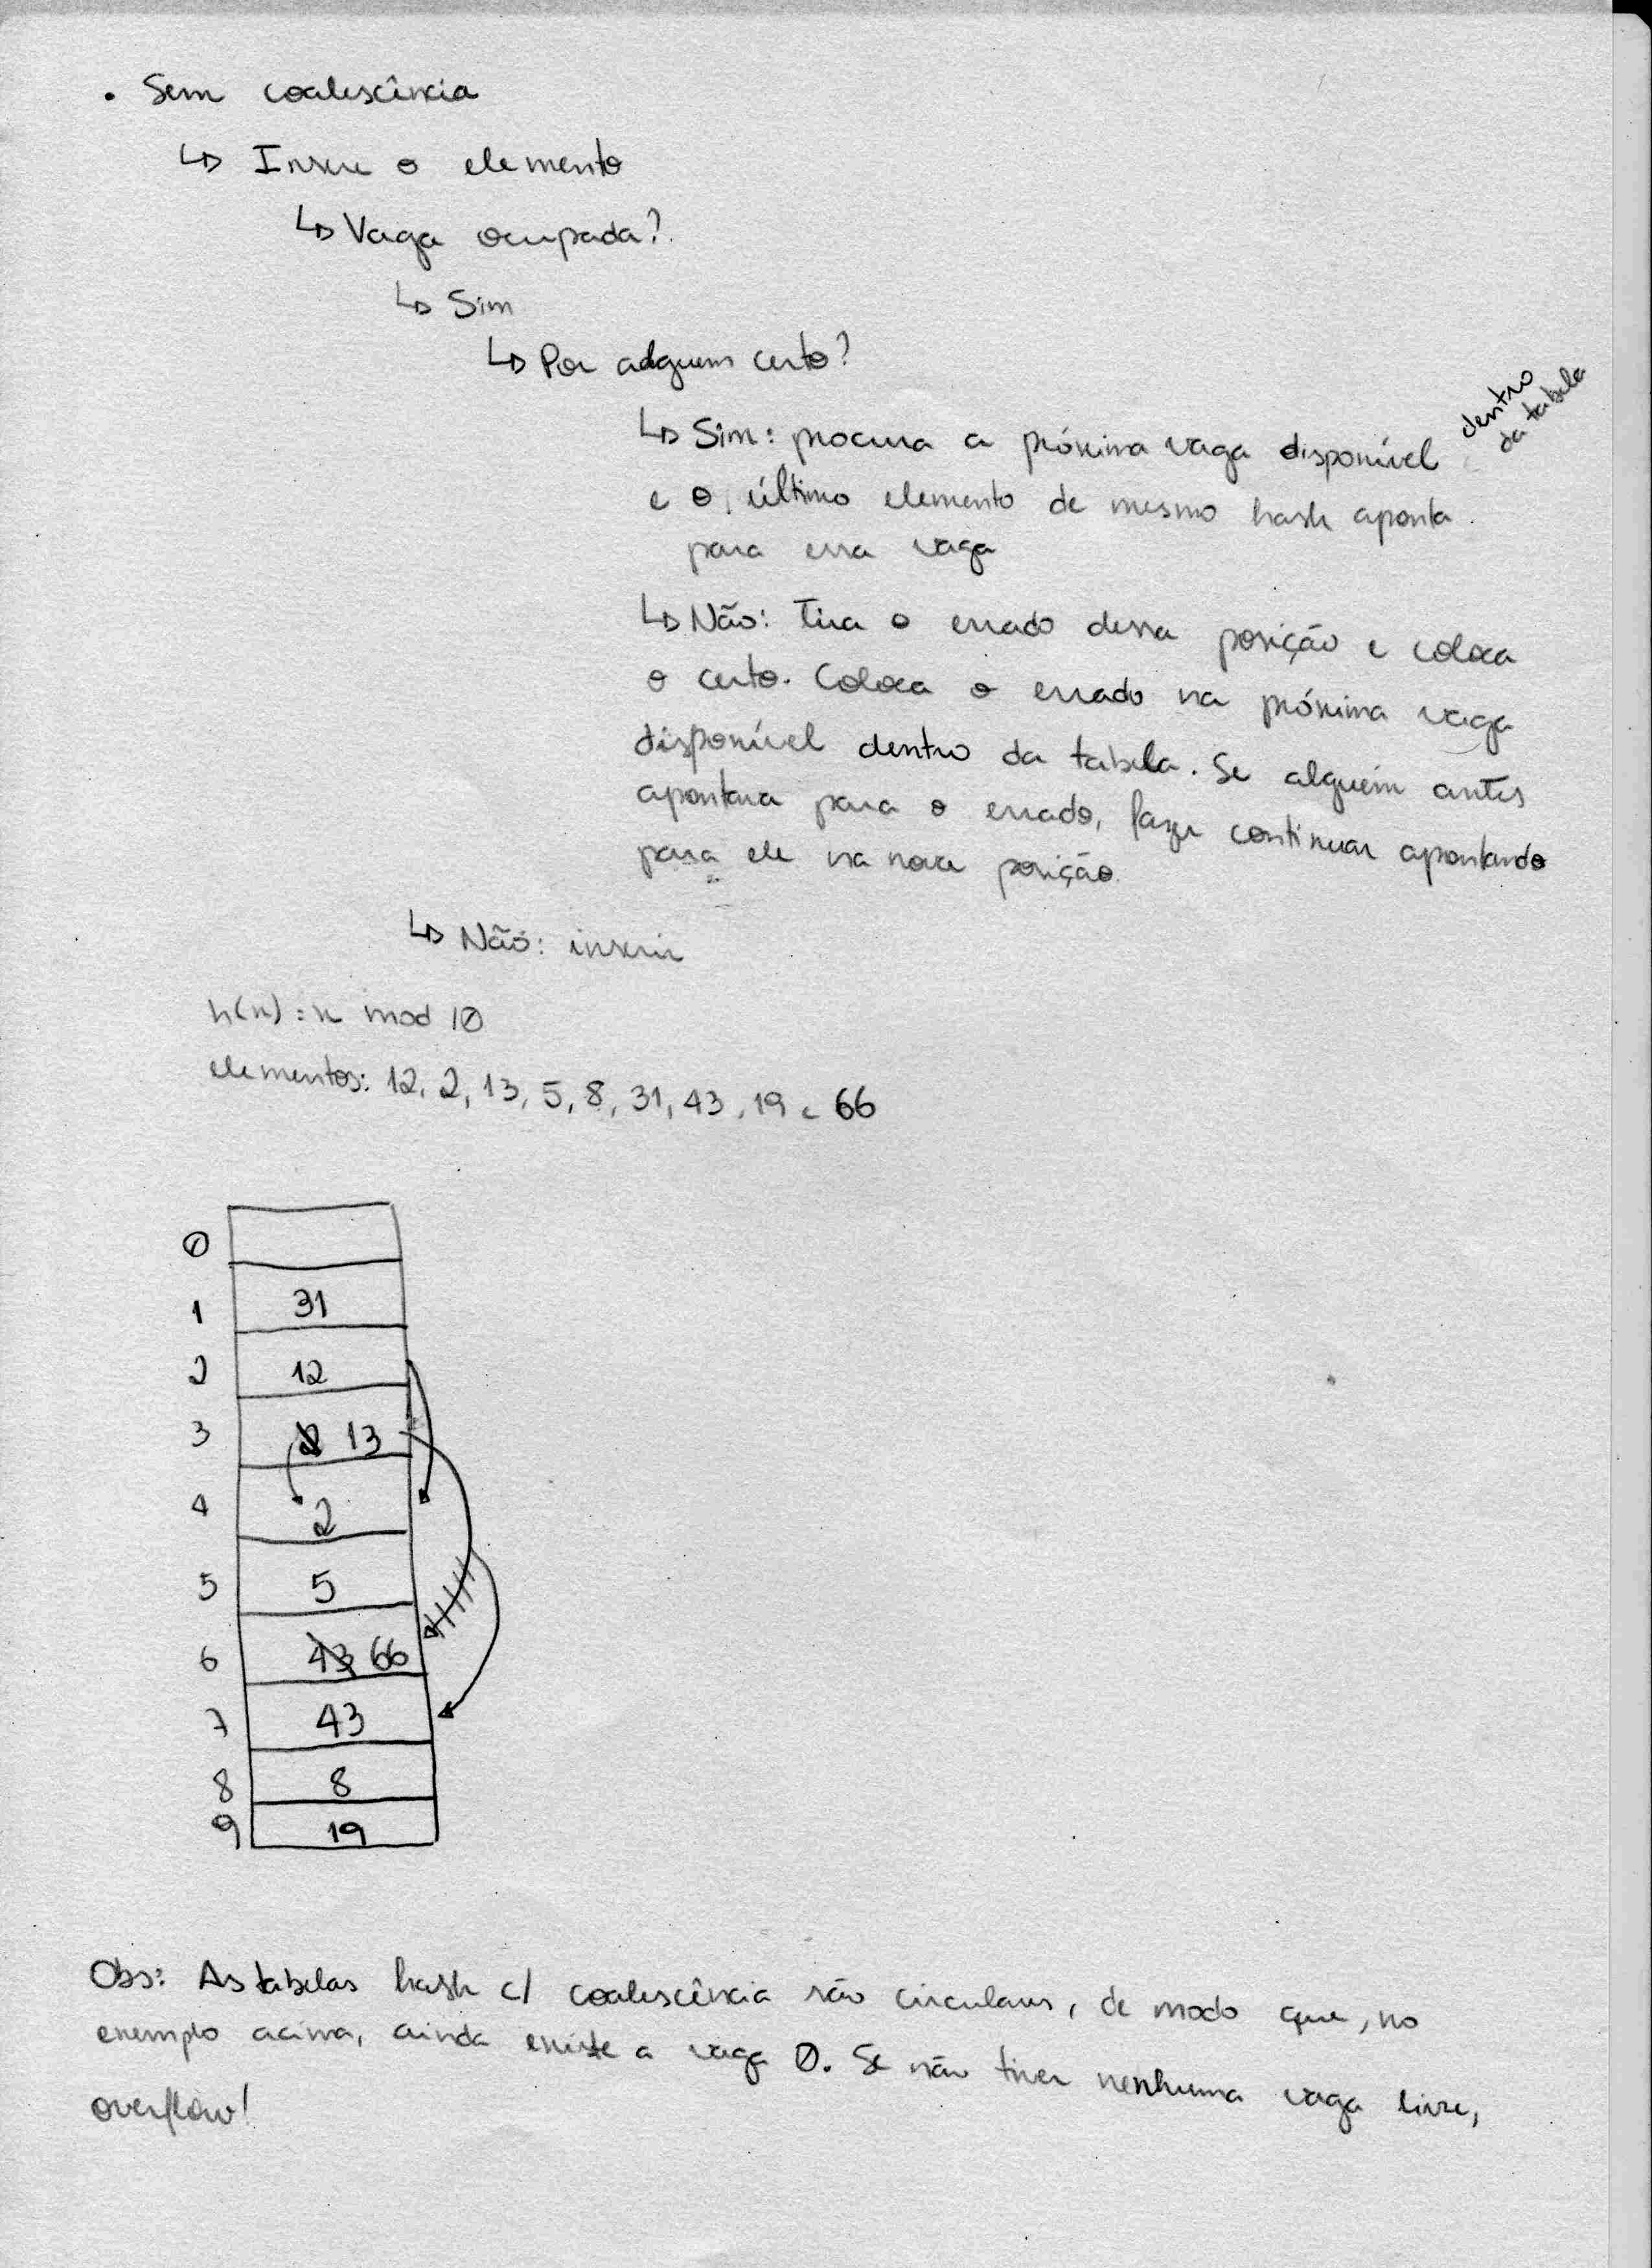 • Sem coalescência
↳ Insere o elemento
↳ Vaga ocupada?
↳ Sim
↳ Por alguém certo?
↳ Sim: procura a próxima vaga disponível dentro da tabela
e o último elemento de mesmo hash aponta
para essa vaga
↳ Não: Tira o errado dessa posição e coloca
o certo. Coloca o errado na próxima vaga
disponível dentro da tabela. Se alguém antes
apontava para o errado, fazer continuar apontando
para ele na nova posição.
↳ Não: inserir
h(x) = x mod 10
elementos: 12, 2, 13, 5, 8, 31, 43, 19 e 66
0
1 31
2 12
3 2 13
4 2
5 5
6 43 66
7 43
8 8
9 19
Obs: As tabelas hash c/ coalescência são circulares, de modo que, no
exemplo acima, ainda existe a vaga 0. Se não tiver nenhuma vaga livre,
overflow!